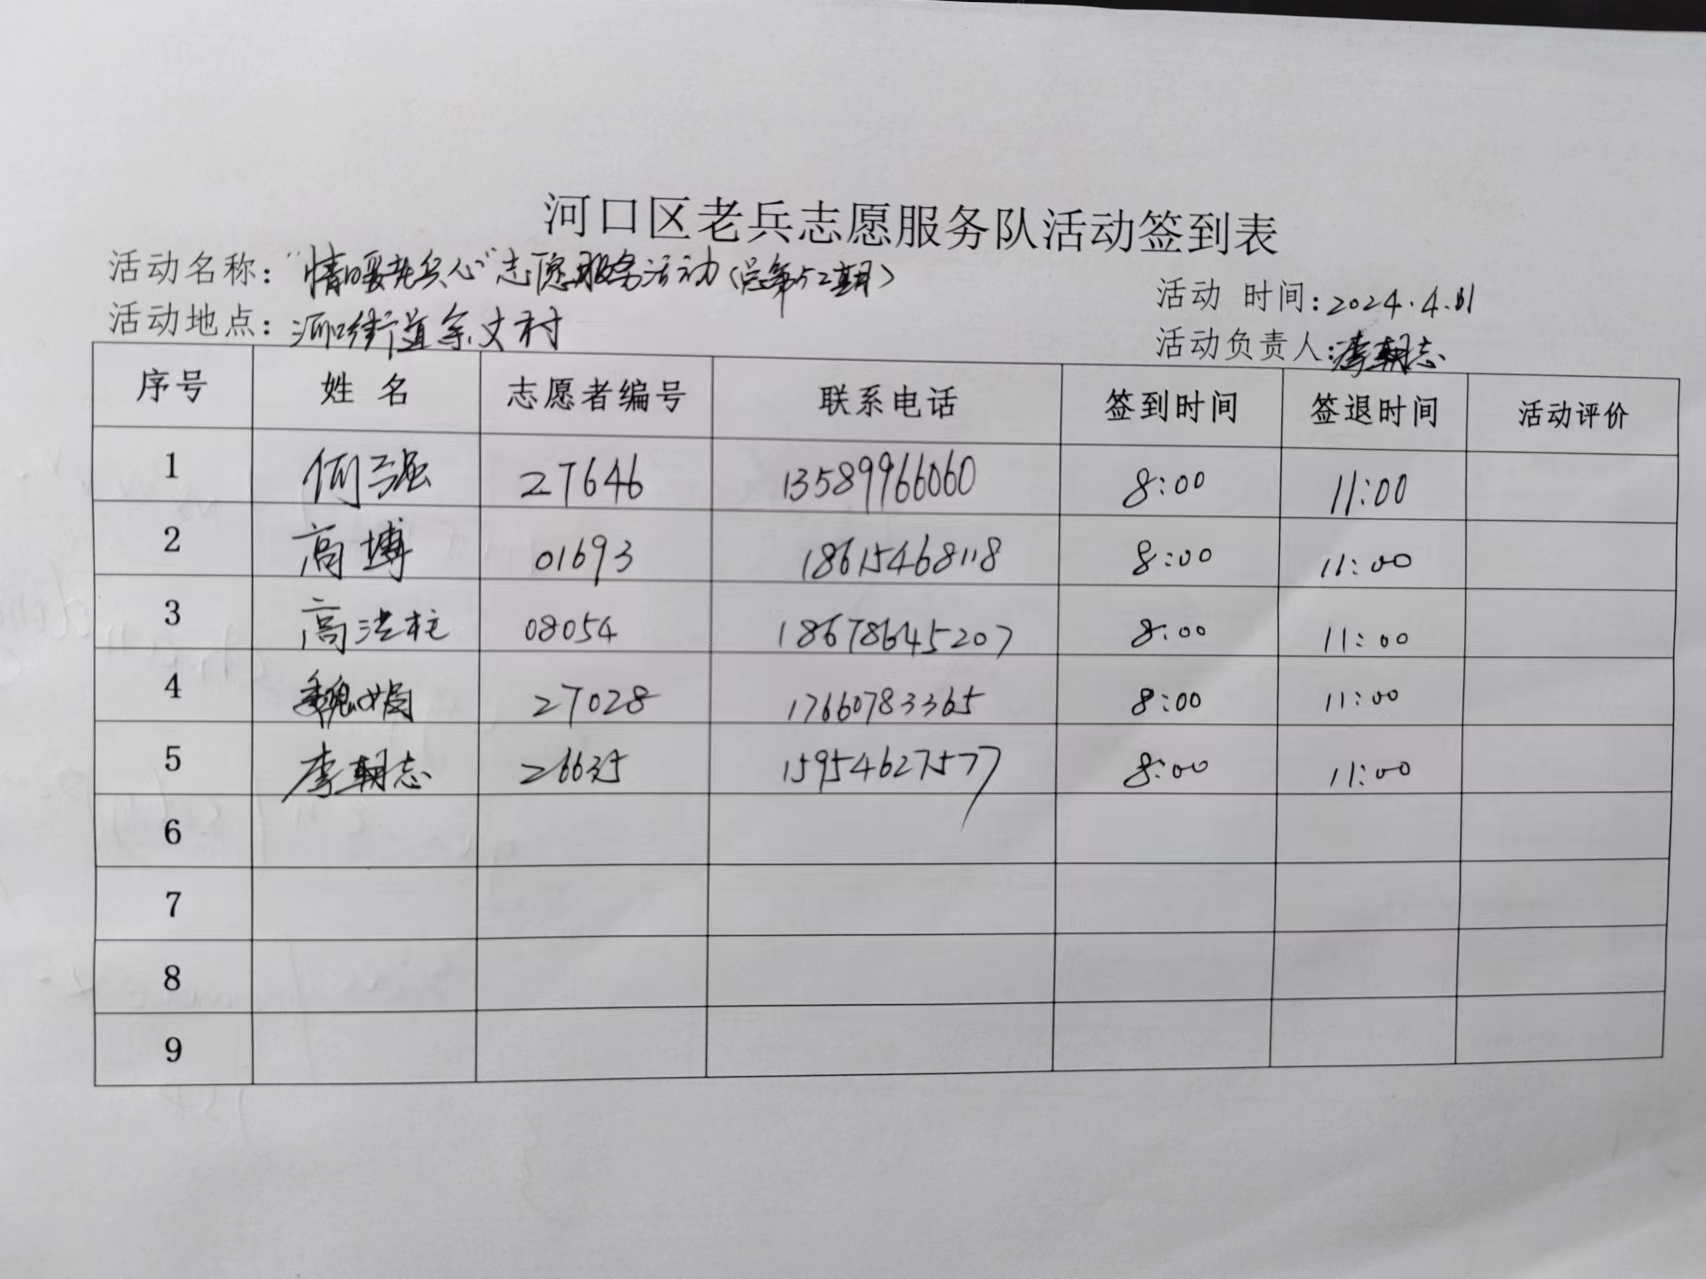 河口区老兵志愿服务队活动签到表
活动名称："情暖老兵心"志愿服务活动(总第52期)
活动 时间：2024.4.11
活动地点：河口街道余丈村
活动负责人：李朝志
序号 姓 名 志愿者编号 联系电话 签到时间 签退时间 活动评价
1 何强 27646 13589966060 8:00 11:00
2 高博 01693 18615468118 8:00 11:00
3 高法柱 08054 18678645207 8:00 11:00
4 魏娟 27028 17660783365 8:00 11:00
5 李朝志 26635 15954627577 8:00 11:00
6
7
8
9